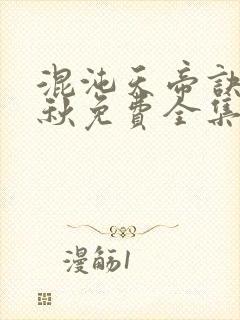 混沌天帝訣
秋免費全集
漫觞1